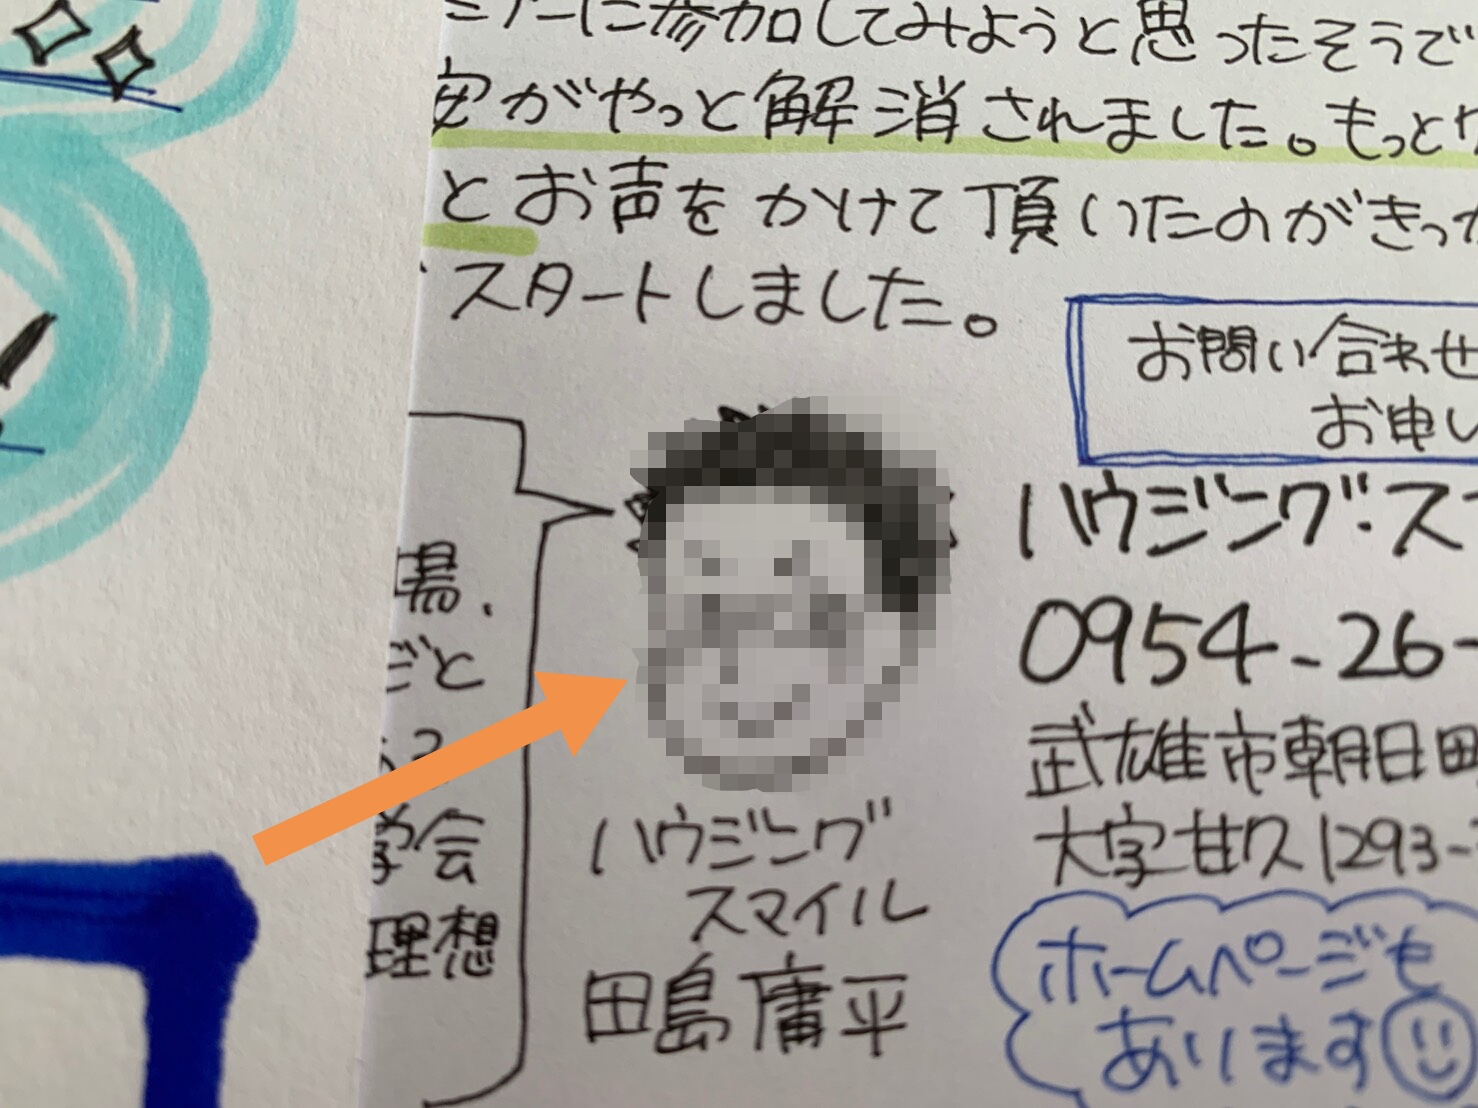 ミナーに参加してみようと思ったそうで
安がやっと解消されました。もっとワ
とお声をかけて頂いたのがきっか
スタートしました。
お問い合わせ
お申し
場、
ごと
学会
理想
ハウジング
スマイル
田島庸平
ハウジング・ス
0954-26-
武雄市朝日
大字甘久1293-
ホームページも
あります